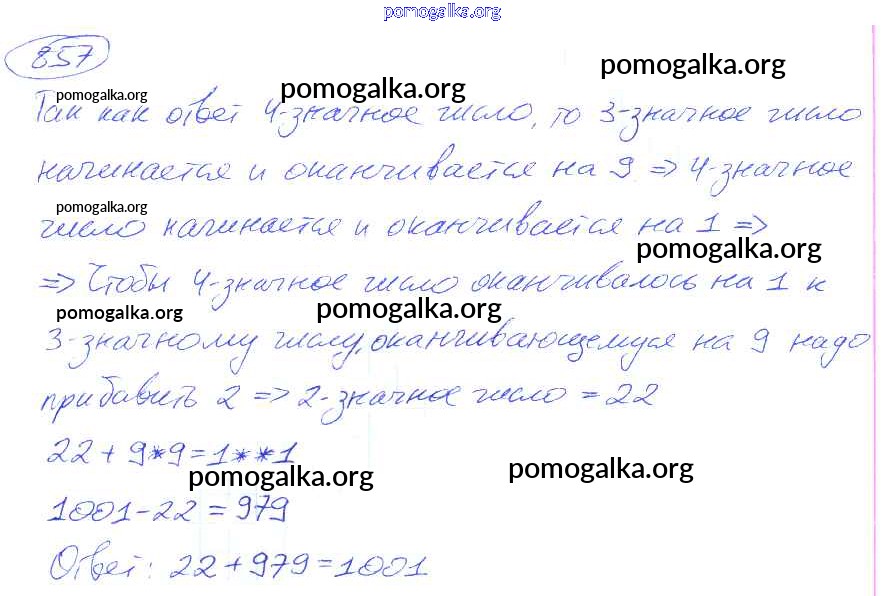 pomogalka.org
857
pomogalka.org
pomogalka.org
pomogalka.org
Так как ответ 4-значное число, то 3-значное число
начинается и оканчивается на 9 => 4-значное
pomogalka.org
число начинается и оканчивается на 1 =>
pomogalka.org
=> Чтобы 4-значное число оканчивалось на 1 к
pomogalka.org
pomogalka.org
3-значному числу, оканчивающемуся на 9 надо
прибавить 2 => 2-значное число = 22
22 + 9*9 = 1**1
pomogalka.org
pomogalka.org
1001 - 22 = 979
Ответ: 22 + 979 = 1001